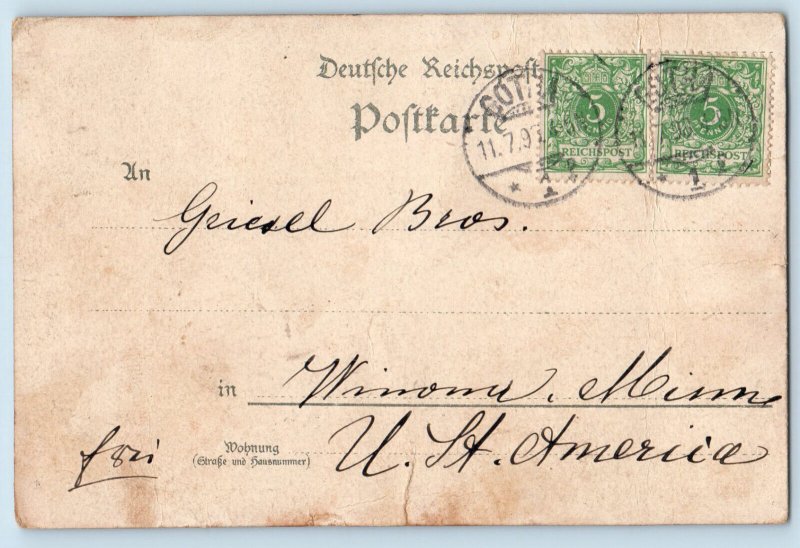 Deutsche Reichspost
Postkarte
GOTHA
11.7.9
* 1
5
REICHSPOST
5
PFENNIG
REICHSPOST
* 1
An
Griesel Bros.
in Winona, Minn
U. St. America
Wohnung
(Straße und Hausnummer)